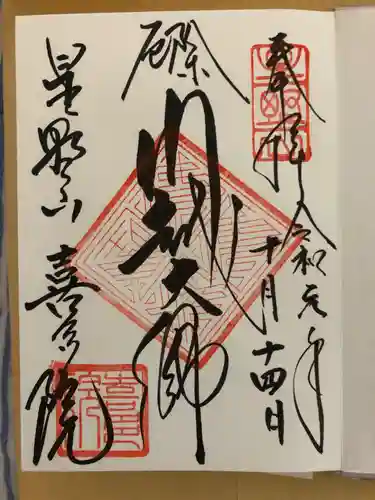 奉拝
令和元年
十月十四日
厄除
川越大師
星野山
喜多院